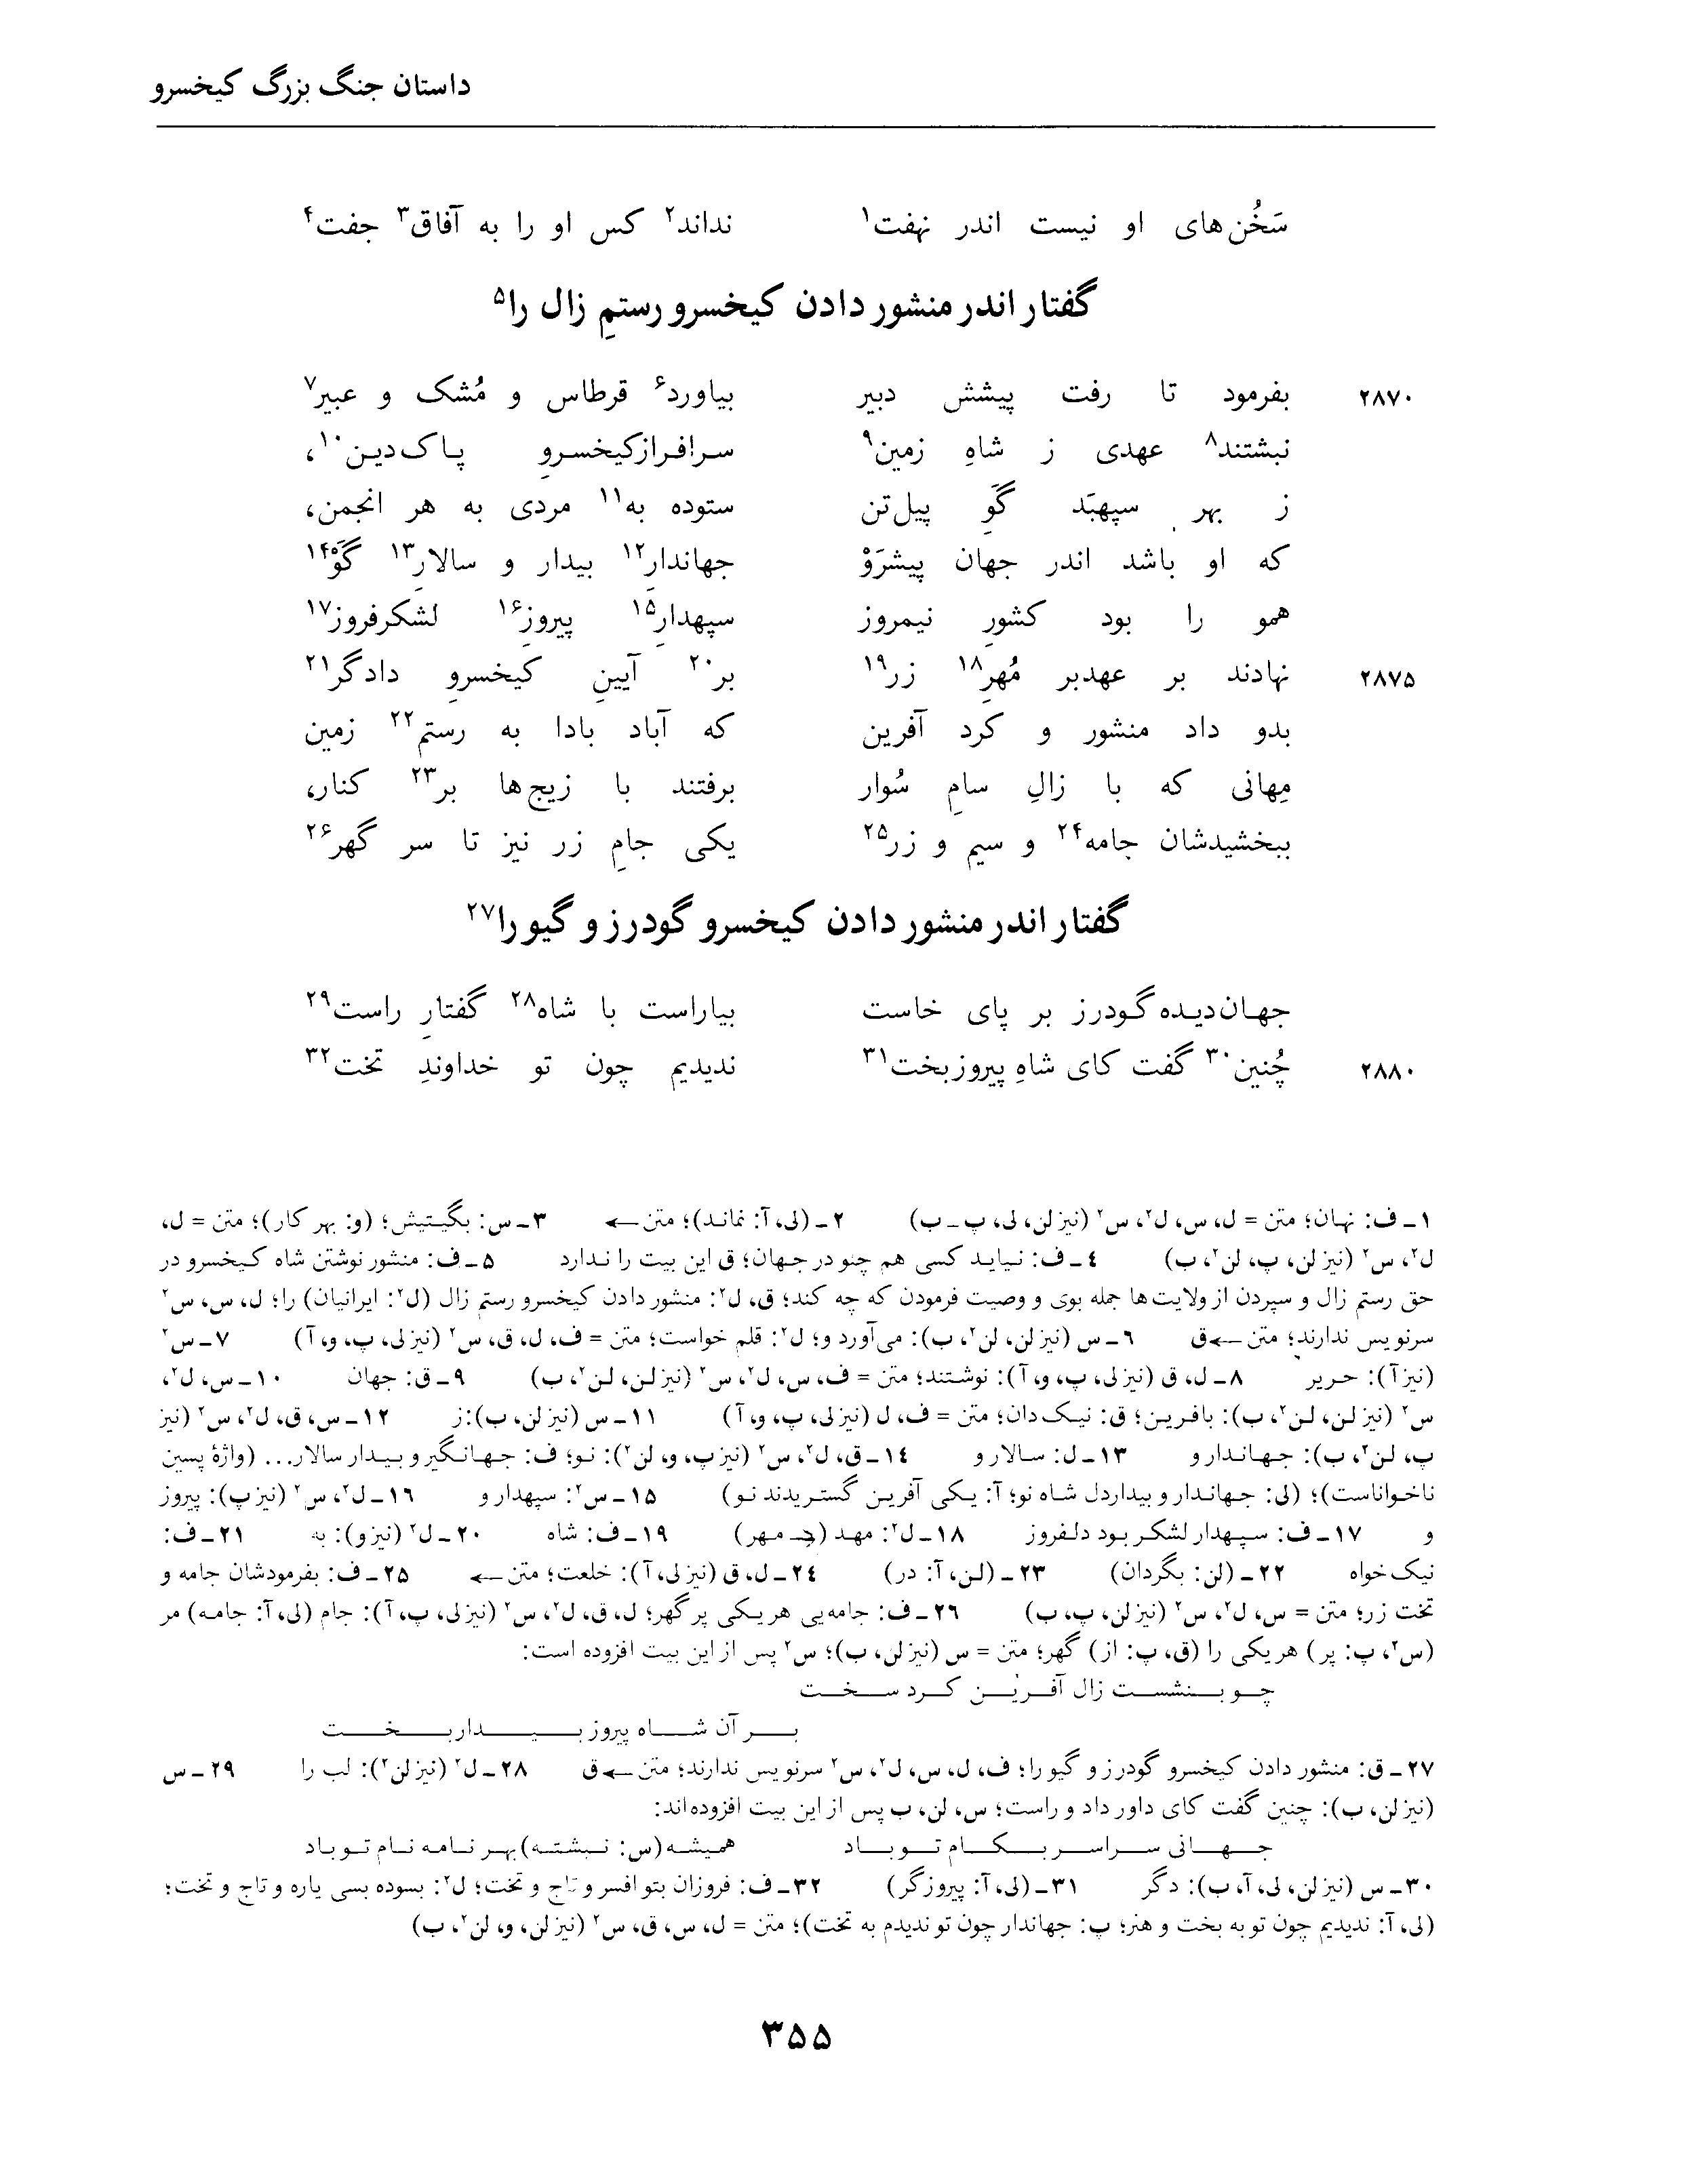 داستان جنگ بزرگ کیخسرو
سَخُن‌های او نیست اندر نهفت۱ نداند۲ کس او را به آفاق۳ جفت۴
گفتار اندر منشور دادن کیخسرو رستمِ زال را۵
۲۸۷۰ بفرمود تا رفت پیشش دبیر بیاورد۶ قرطاس و مُشک و عبیر۷
نبشتند۸ عهدی ز شاهِ زمین۹ سرافراز کیخسروِ پاک‌دین۱۰،
ز بهرِ سپهبَد گَوِ پیل‌تن ستوده به۱۱ مردی به هر انجمن،
که او باشد اندر جهان پیشرَوْ جهاندارِ۱۲ بیدار و سالارِ۱۳ گَوْ۱۴
همو را بود کشورِ نیمروز سپهدارِ۱۵ پیروزِ۱۶ لشکرفروز۱۷
۲۸۷۵ نهادند بر عهدبر مُهرِ۱۸ زر۱۹ بر۲۰ آیینِ کیخسروِ دادگر۲۱
بدو داد منشور و کرد آفرین که آباد بادا به رستم۲۲ زمین
مِهانی که با زالِ سامِ سُوار برفتند با زیج‌ها بر۲۳ کنار،
ببخشیدشان جامه۲۴ و سیم و زر۲۵ یکی جامِ زر نیز تا سر گهر۲۶
گفتار اندر منشور دادن کیخسرو گودرز و گیو را۲۷
جهان‌دیده گودرز بر پای خاست بیاراست با شاه۲۸ گفتارِ راست۲۹
۲۸۸۰ چُنین۳۰ گفت کای شاهِ پیروزبخت۳۱ ندیدیم چون تو خداوندِ تخت۳۲
۱ــ ف: نهان؛ متن = ل، س، ل۲، س۲ (نیز لن، لی، پ ــ ب) ۲ــ (لی، آ: نماند)؛ متن← ۳ــ س: بگیتیش؛ (و: بهر کار)؛ متن = ل،
ل۲، س۲ (نیز لن، پ، لن۲، ب) ۴ــ ف: نیاید کسی هم چنو در جهان؛ ق این بیت را ندارد ۵ــ ف: منشور نوشتن شاه کیخسرو در
حق رستم زال و سپردن از ولایت‌ها جمله بوی و وصیت فرمودن که چه کند؛ ق، ل۲: منشور دادن کیخسرو رستم زال (ل۲: ایرانیان) را؛ ل، س، س۲
سرنویس ندارند؛ متن←ق ۶ــ س (نیز لن، لن۲، ب): می‌آورد و؛ ل۲: قلم خواست؛ متن = ف، ل، ق، س۲ (نیز لی، پ، و، آ) ۷ــ س۲
(نیز آ): حریر ۸ــ ل، ق (نیز لی، پ، و، آ): نوشتند؛ متن = ف، س، ل۲، س۲ (نیز لن، لن۲، ب) ۹ــ ق: جهان ۱۰ــ س، ل۲،
س۲ (نیز لن، لن۲، ب): بافرین؛ ق: نیک‌دان؛ متن = ف، ل (نیز لی، پ، و، آ) ۱۱ــ س (نیز لن، ب): ز ۱۲ــ س، ق، ل۲، س۲ (نیز
پ، لن۲، ب): جهاندار و ۱۳ــ ل: سالار و ۱۴ــ ق، ل۲، س۲ (نیز پ، و، لن۲): نو؛ ف: جهانگیر و بیدار سالار... (واژهٔ پسین
ناخواناست)؛ (لی: جهاندار و بیداردل شاه نو؛ آ: یکی آفرین گستریدند نو) ۱۵ــ س۲: سپهدار و ۱۶ــ ل۲، س۲ (نیز پ): پیروز
و ۱۷ــ ف: سپهدار لشکر بود دلفروز ۱۸ــ ل۲: مهد (جـ مهر) ۱۹ــ ف: شاه ۲۰ــ ل۲ (نیز و): به ۲۱ــ ف:
نیک‌خواه ۲۲ــ (لن: بگردان) ۲۳ــ (لن، آ: در) ۲۴ــ ل، ق (نیز لی، آ): خلعت؛ متن← ۲۵ــ ف: بفرمودشان جامه و
تخت زر؛ متن = س، ل۲، س۲ (نیز لن، پ، ب) ۲۶ــ ف: جامه‌یی هر یکی پر گهر؛ ل، ق، ل۲، س۲ (نیز لی، پ، آ): جام (لی، آ: جامه) مر
(س۲، پ: پر) هر یکی را (ق، پ: از) گهر؛ متن = س (نیز لن، ب)؛ س۲ پس از این بیت افزوده است:
چو بنشست زال آفرین کرد سخت
بر آن شاه پیروز بیداربخت
۲۷ــ ق: منشور دادن کیخسرو گودرز و گیو را؛ ف، ل، س، ل۲، س۲ سرنویس ندارند؛ متن←ق ۲۸ــ ل۲ (نیز لن۲): لب را ۲۹ــ س
(نیز لن، ب): چنین گفت کای داور داد و راست؛ س، لن، ب پس از این بیت افزوده‌اند:
جهانی سراسر بکام تو باد همیشه (س: نبشته) بهر نامه نام تو باد
۳۰ــ س (نیز لن، لی، آ، ب): دگر ۳۱ــ (لی، آ: پیروزگر) ۳۲ــ ف: فروزان بتو افسر و تاج و تخت؛ ل۲: بسوده بسی یاره و تاج و تخت؛
(لی، آ: ندیدیم چون تو به بخت و هنر؛ پ: جهاندار چون تو ندیدم به تخت)؛ متن = ل، س، ق، س۲ (نیز لن، و، لن۲، ب)
۳۵۵